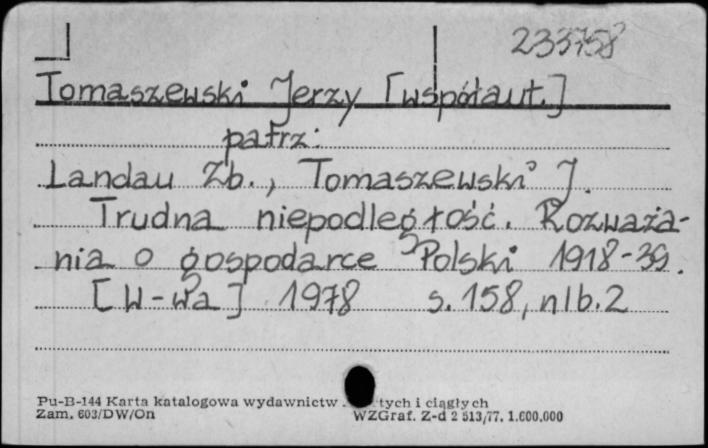 233758
Tomaszewski Jerzy [współaut.]
patrz:
Landau Zb., Tomaszewski J.
Trudna niepodległość. Rozważa-
nia o gospodarce Polski 1918-39.
[W-wa] 1978 s. 158, nlb. 2
Pu-B-144 Karta katalogowa wydawnictw tych i ciągłych
Zam. 603/DW/On WZGraf. Z-d 2 513/77. 1.600.000